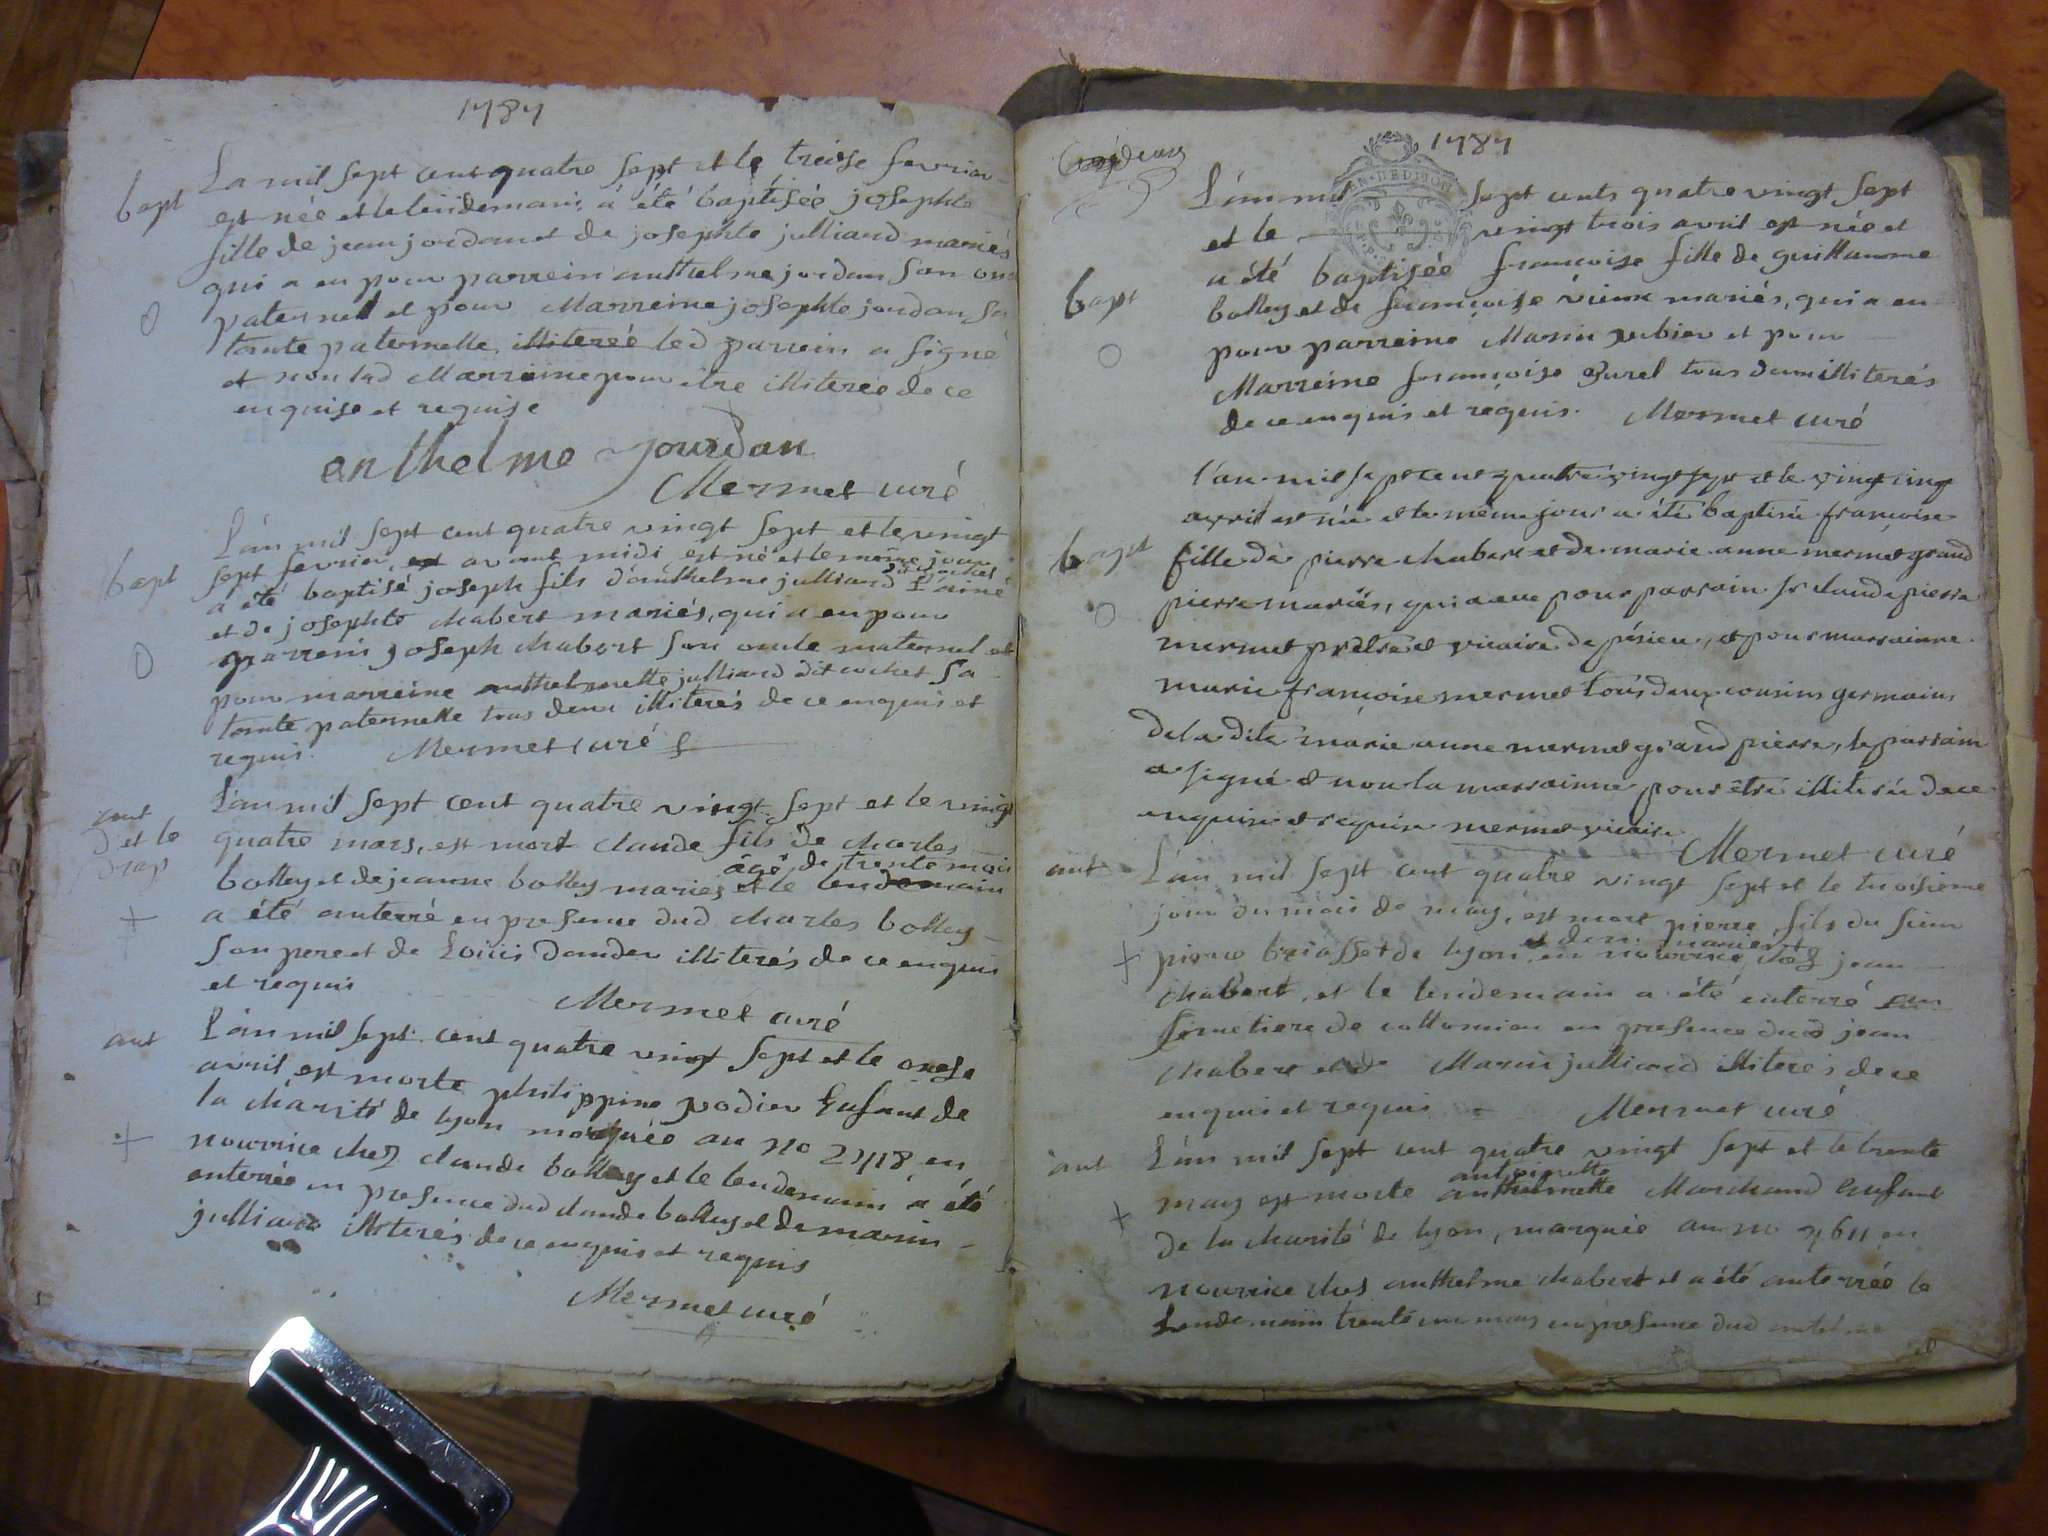 1787
La mil sept cent quatre sept et le treise fevrier
bapt
est née et le lendemain a été baptisée josephte
fille de jean jordan et de josephte julliard mariés
qui a eu pour parrein anthelme jordan son oncle
paternel et pour Marreine josephte jordan sa
tante paternelle illiterée led parrein a signé
et non lad Marreine pour être illiterée de ce
enquise et requise
enthelme jourdan
Mermet curé
L'an mil sept cent quatre vingt sept et le vingt
bapt
sept fevrier, avant midi est né et le même jour
a été baptisé joseph fils d'anthelme julliard dit cochet l'ainé
et de josephte chabert mariés, qui a eu pour
parrein joseph chabert son oncle maternel et
pour marreine anthelmette julliard dit cochet sa
tante paternelle tous deux illiterés de ce enquis et
requis. Mermet curé
L'an mil sept cent quatre vingt sept et le vingt
ant
d et le
drap
quatre mars, est mort claude fils de charles
bolley et de jeanne bolley mariés âgé de trente mois et le lendemain
a été anterré en presence dud charles bolley
son pere et de Louis dandeu illiterés de ce enquis
et requis
Mermet curé
ant
L'an mil sept cent quatre vingt sept et le onese
avril est morte philippine podieu Enfant de
la charité de lyon marquée au no 2718 en
nourrice chez claude bolley et le lendemain a été
enterrée en presence dud claude bolley et de marin
julliard illiterés de ce enquis et requis
Mermet curé
1787
L'an mil sept cents quatre vingt sept
et le vingt trois avril est née et
a été baptisée françoise fille de guillaume
bapt
bolley et de françoise vieux mariés, qui a eu
pour parreine Marin pubier et pour
Marreine françoise Burel tous deux illiterés
de ce enquis et requis. Mermet curé
l'an mil sept cent quatre vingt sept et le vingt cinq
avril est née et le même jour a été baptisée françoise
bapt
fille de pierre chabert et de marie anne mermet grand
pierre mariés, qui a eue pour parrain sr claude pierre
mermet prêtre et vicaire de périeu, et pour marrainne
marie françoise mermet tous deux cousins germains
de la dite marie anne mermet grand pierre, le parrain
a signé et non la marrainne pour être illiterée de ce
enquise et requise mermet vicaire
Mermet curé
ant
L'an mil sept cent quatre vingt sept et le troisieme
jour du mois de may, est mort pierre, fils du sieur
pierre briasset de lyon et de n. mariés en nourrice chez jean
chabert, et le lendemain a été enterré au
simetiere de collomieu en presence dud jean
chabert et de Marin julliard illiterés de ce
enquis et requis Mermet curé
ant
L'an mil sept cent quatre vingt sept et le trente
antoinette
may est morte anthelmette Marchand Enfant
de la charité de lyon, marquée au no 7611 en
nourrice chés anthelme chabert et a été anterrée le
Lendemain trente un may en presence dud antelme
et